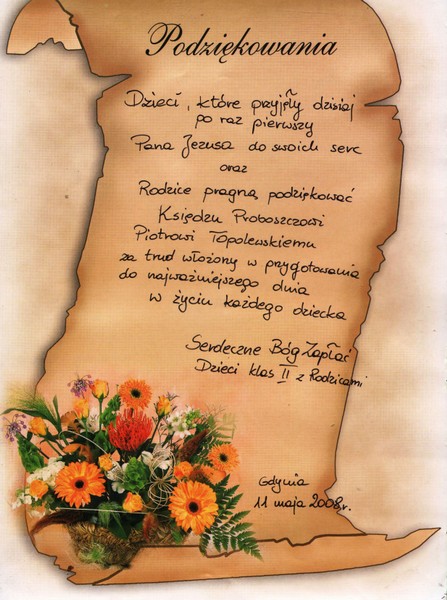 Podziękowania
Dzieci, które przyjęły dzisiaj
po raz pierwszy
Pana Jezusa do swoich serc
oraz
Rodzice pragną podziękować
Księdzu Proboszczowi
Piotrowi Topolewskiemu
za trud włożony w przygotowania
do najważniejszego dnia
w życiu każdego dziecka
Serdeczne Bóg Zapłać
Dzieci klas II z Rodzicami
Gdynia
11 maja 2008r.